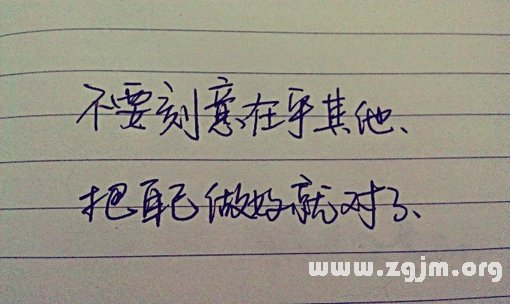 不要刻意在乎其他、
把自己做好就对了、
www.zgjm.org